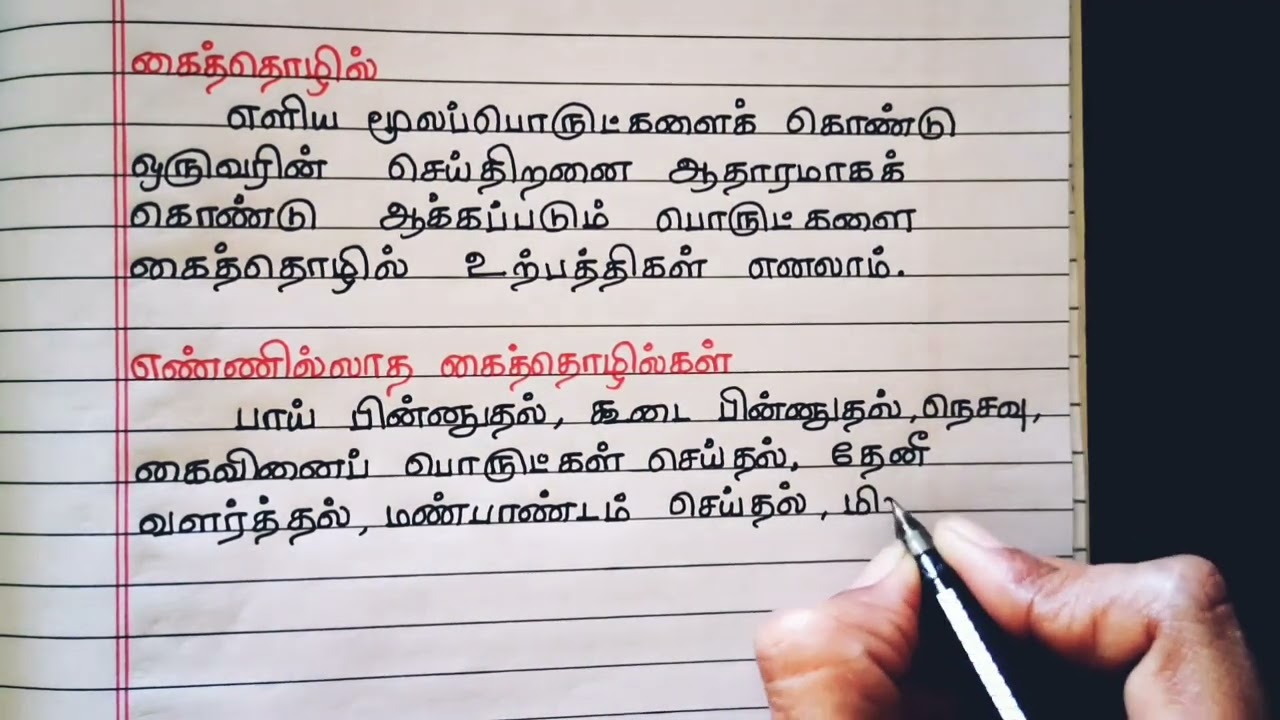 கைத்தொழில்
எளிய மூலப்பொருட்களைக் கொண்டு
ஒருவரின் செய்திறனை ஆதாரமாகக்
கொண்டு ஆக்கப்படும் பொருட்களை
கைத்தொழில் உற்பத்திகள் எனலாம்.
எண்ணில்லாத கைத்தொழில்கள்
பாய் பின்னுதல், கூடை பின்னுதல், நெசவு,
கைவினைப் பொருட்கள் செய்தல், தேனீ
வளர்த்தல், மண்பாண்டம் செய்தல், மி